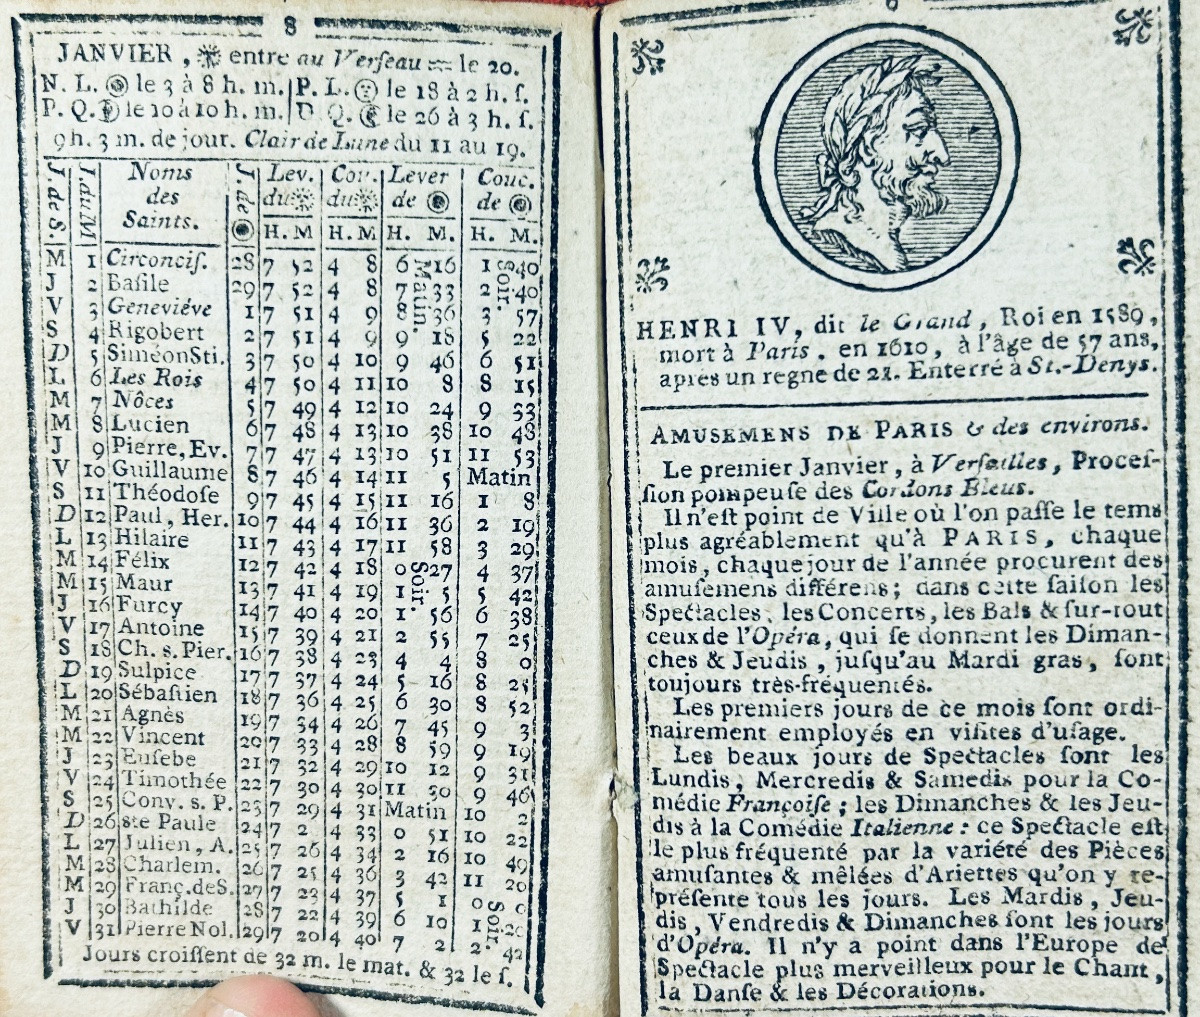 8
JANVIER, entre au Verſeau ♒ le 20.
N. L. le 3 à 8 h. m. P. L. le 18 à 2 h. ſ.
P. Q. le 10 à 10 h. m. D. Q. le 26 à 3 h. ſ.
9 h. 3 m. de jour. Clair de Lune du 11 au 19.
J. de S. J. du M Noms des Saints. J. de Lev. du Cou. du Lever de Couc. de
H. M H. M H. M. H. M.
M 1 Circonciſ. 28 7 52 4 8 6 Matin. 16 1 Soir. 40
J 2 Baſile 29 7 52 4 8 7 33 2 40
V 3 Geneviéve 1 7 51 4 9 8 36 3 57
S 4 Rigobert 2 7 51 4 9 9 18 5 22
D 5 Siméon Sti. 3 7 50 4 10 9 46 6 51
L 6 Les Rois 4 7 50 4 11 10 8 8 15
M 7 Nôces 5 7 49 4 12 10 24 9 33
M 8 Lucien 6 7 48 4 13 10 38 10 48
J 9 Pierre, Ev. 7 7 47 4 13 10 51 11 53
V 10 Guillaume 8 7 46 4 14 11 5 Matin
S 11 Théodoſe 9 7 45 4 15 11 16 1 8
D 12 Paul, Her. 10 7 44 4 16 11 36 2 19
L 13 Hilaire 11 7 43 4 17 11 58 3 29
M 14 Félix 12 7 42 4 18 0 Soir. 27 4 37
M 15 Maur 13 7 41 4 19 1 5 5 42
J 16 Furcy 14 7 40 4 20 1 56 6 38
V 17 Antoine 15 7 39 4 21 2 55 7 25
S 18 Ch. s. Pier. 16 7 38 4 23 4 4 8 0
D 19 Sulpice 17 7 37 4 24 5 16 8 25
L 20 Sébaſtien 18 7 36 4 25 6 30 8 52
M 21 Agnès 19 7 34 4 26 7 45 9 3
M 22 Vincent 20 7 33 4 28 8 59 9 19
J 23 Euſebe 21 7 32 4 29 10 12 9 31
V 24 Timothée 22 7 30 4 30 11 30 9 46
S 25 Conv. s. P. 23 7 29 4 31 Matin 10 2
D 26 ste Paule 24 7 2 4 33 0 51 10 22
L 27 Julien, A. 25 7 26 4 34 2 16 10 49
M 28 Charlem. 26 7 25 4 36 3 42 11 20
M 29 Franç. de S. 27 7 23 4 37 5 1 0 Soir. 0
J 30 Bathilde 28 7 22 4 39 6 10 1 20
V 31 Pierre Nol. 29 7 20 4 40 7 2 2 42
Jours croiſſent de 32 m. le mat. & 32 le ſ.
HENRI IV, dit le Grand, Roi en 1589,
mort à Paris, en 1610, à l'âge de 57 ans,
après un regne de 21. Enterré à St.-Denys.
AMUSEMENS DE PARIS & des environs.
Le premier Janvier, à Verſailles, Proceſ-
ſion pompeuſe des Cordons Bleus.
Il n'eſt point de Ville où l'on paſſe le tems
plus agréablement qu'à PARIS, chaque
mois, chaque jour de l'année procurent des
amuſemens différens; dans cette ſaiſon les
Spectacles, les Concerts, les Bals & ſur-tout
ceux de l'Opéra, qui ſe donnent les Diman-
ches & Jeudis, juſqu'au Mardi gras, ſont
toujours très-fréquentés.
Les premiers jours de ce mois ſont ordi-
nairement employés en viſites d'uſage.
Les beaux jours de Spectacles ſont les
Lundis, Mercredis & Samedis pour la Co-
médie Françoiſe; les Dimanches & les Jeu-
dis à la Comédie Italienne: ce Spectacle eſt
le plus fréquenté par la variété des Pièces
amuſantes & mêlées d'Ariettes qu'on y re-
préſente tous les jours. Les Mardis, Jeu-
dis, Vendredis & Dimanches ſont les jours
d'Opéra. Il n'y a point dans l'Europe de
Spectacle plus merveilleux pour le Chant,
la Danſe & les Décorations.